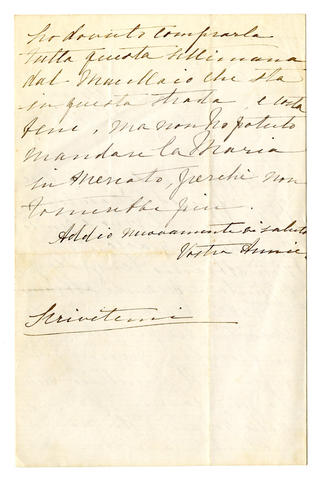 ho dovuto comprarla
tutta questa settimana
dal Macellaio che sta
in questa strada, e costa
bene, ma non ho potuto
mandare la Maria
in Mercato, perchè non
tornerebbe più.
Addio nuovamente vi saluto
Vostra Annie.
Scrivetemi